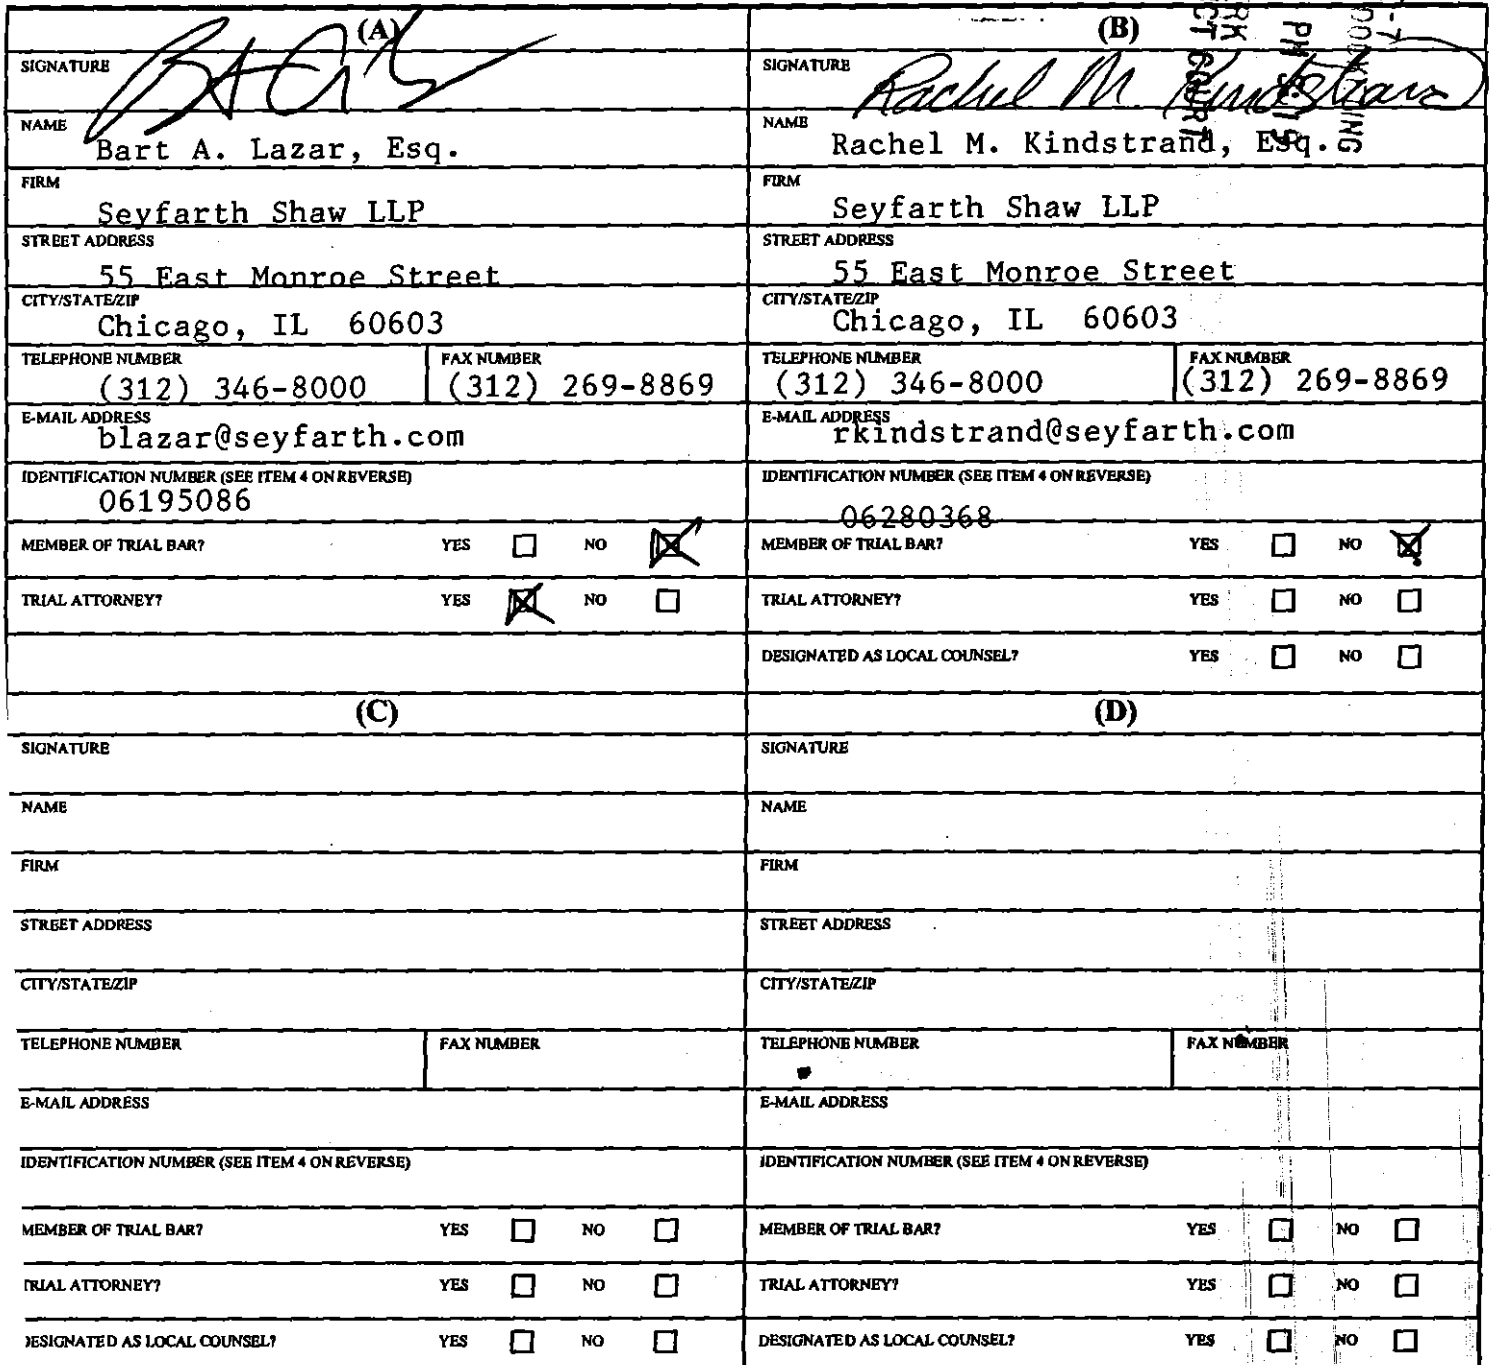 (A)
SIGNATURE
NAME
Bart A. Lazar, Esq.
FIRM
Seyfarth Shaw LLP
STREET ADDRESS
55 East Monroe Street
CITY/STATE/ZIP
Chicago, IL 60603
TELEPHONE NUMBER FAX NUMBER
(312) 346-8000 (312) 269-8869
E-MAIL ADDRESS
blazar@seyfarth.com
IDENTIFICATION NUMBER (SEE ITEM 4 ON REVERSE)
06195086
MEMBER OF TRIAL BAR? YES NO
TRIAL ATTORNEY? YES NO
(B)
SIGNATURE
Rachel M. Kindstrand
NAME
Rachel M. Kindstrand, Esq.
FIRM
Seyfarth Shaw LLP
STREET ADDRESS
55 East Monroe Street
CITY/STATE/ZIP
Chicago, IL 60603
TELEPHONE NUMBER FAX NUMBER
(312) 346-8000 (312) 269-8869
E-MAIL ADDRESS
rkindstrand@seyfarth.com
IDENTIFICATION NUMBER (SEE ITEM 4 ON REVERSE)
06280368
MEMBER OF TRIAL BAR? YES NO
TRIAL ATTORNEY? YES NO
DESIGNATED AS LOCAL COUNSEL? YES NO
(C)
SIGNATURE
NAME
FIRM
STREET ADDRESS
CITY/STATE/ZIP
TELEPHONE NUMBER FAX NUMBER
E-MAIL ADDRESS
IDENTIFICATION NUMBER (SEE ITEM 4 ON REVERSE)
MEMBER OF TRIAL BAR? YES NO
TRIAL ATTORNEY? YES NO
DESIGNATED AS LOCAL COUNSEL? YES NO
(D)
SIGNATURE
NAME
FIRM
STREET ADDRESS
CITY/STATE/ZIP
TELEPHONE NUMBER FAX NUMBER
E-MAIL ADDRESS
IDENTIFICATION NUMBER (SEE ITEM 4 ON REVERSE)
MEMBER OF TRIAL BAR? YES NO
TRIAL ATTORNEY? YES NO
DESIGNATED AS LOCAL COUNSEL? YES NO